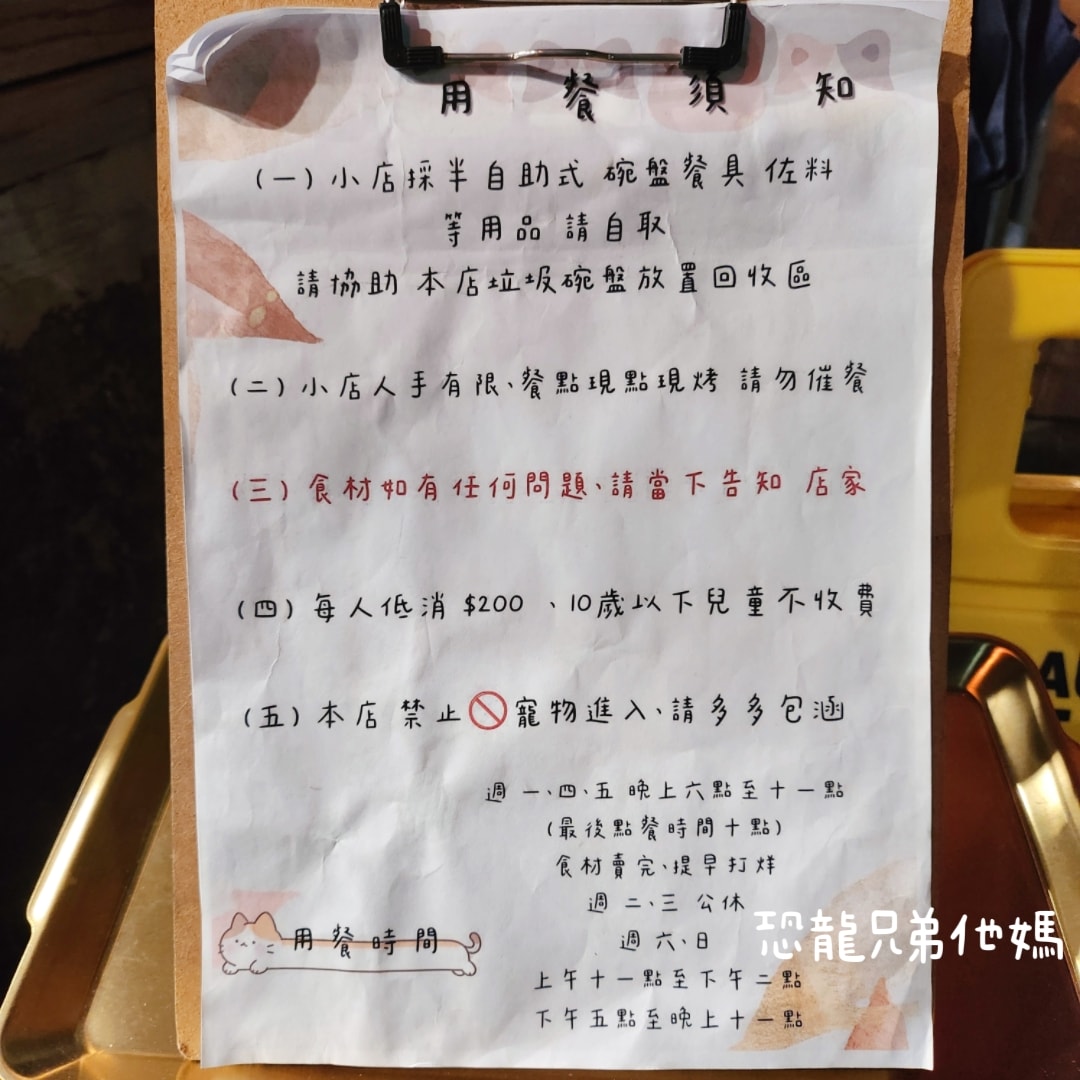 用餐須知
(一)小店採半自助式 碗盤餐具 佐料
等用品 請自取
請協助 本店垃圾碗盤放置回收區
(二)小店人手有限、餐點現點現烤 請勿催餐
(三)食材如有任何問題、請當下告知 店家
(四)每人低消 $200 、10歲以下兒童不收費
(五)本店 禁止🚫寵物進入、請多多包涵
週 一、四、五 晚上六點至十一點
(最後點餐時間十點)
食材賣完、提早打烊
週 二、三 公休
用餐時間
週 六、日
上午十一點至下午二點
下午五點至晚上十一點
恐龍兄弟他媽